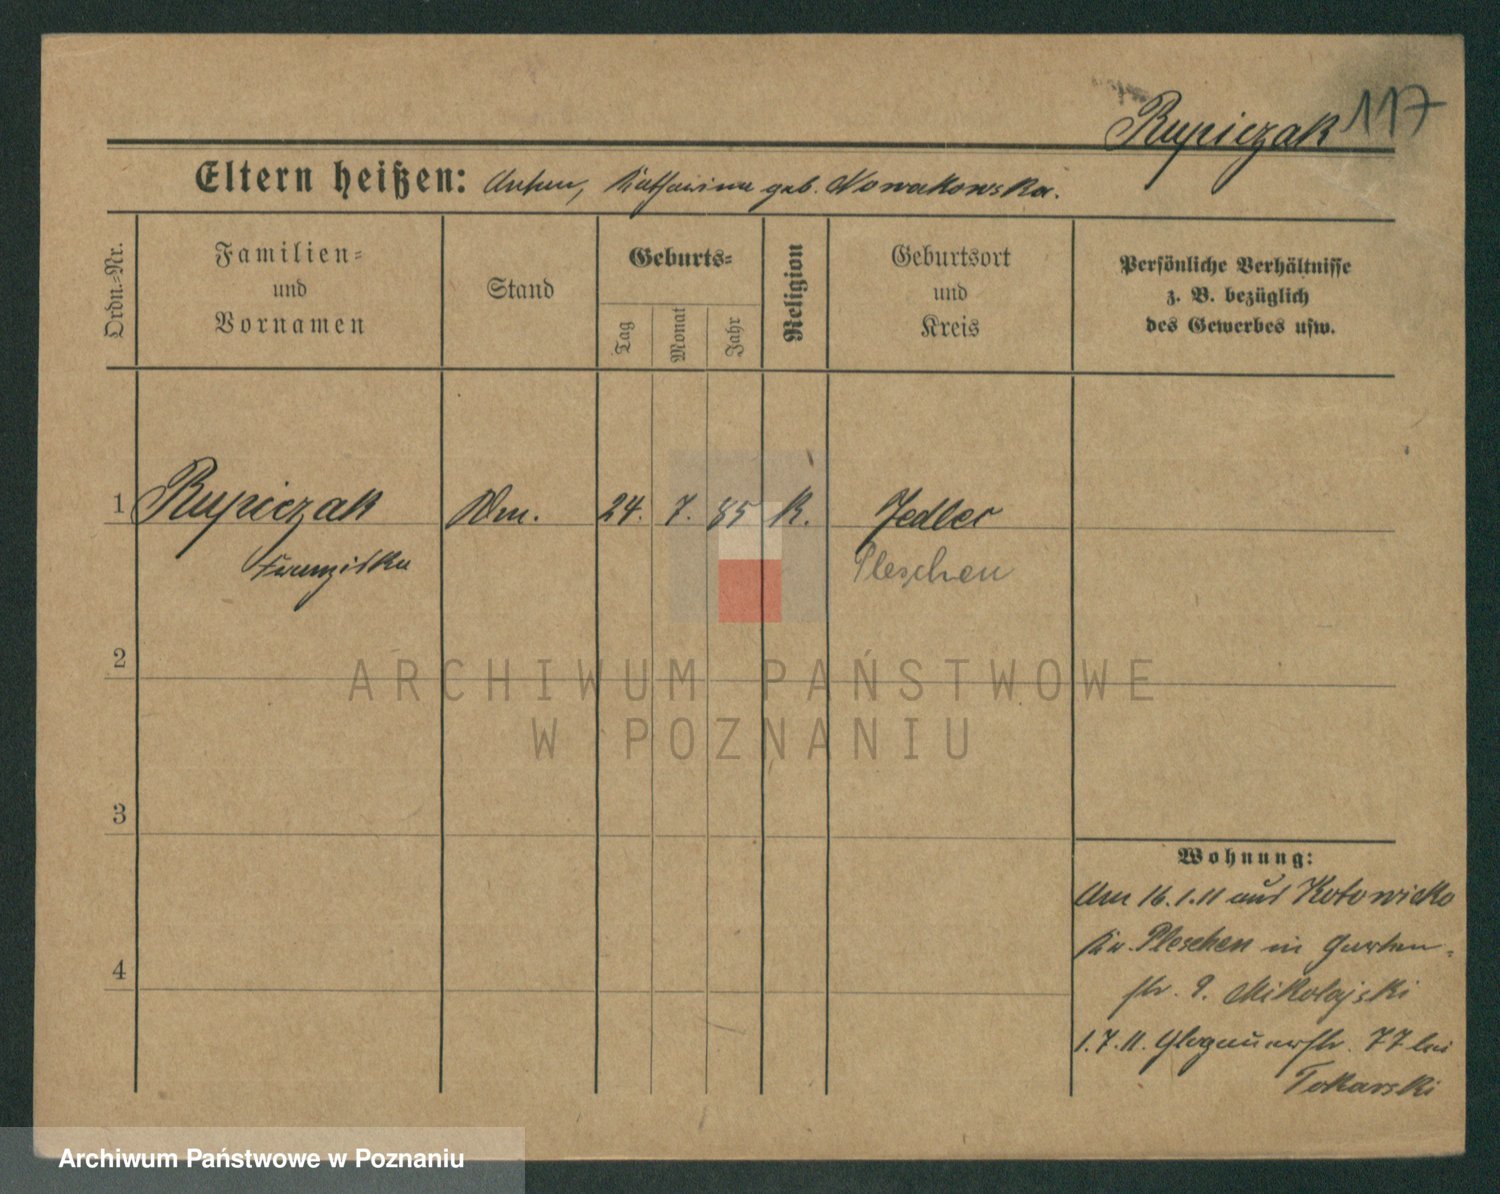 Rupiczak 117
Eltern heißen: Anton, Katharina geb. Nowakowska.
Ordn.=Nr.
Familien=
und
Vornamen
Stand
Geburts=
Tag
Monat
Jahr
Religion
Geburtsort
und
Kreis
Persönliche Verhältnisse
z. B. bezüglich
des Gewerbes usw.
1 Rupiczak 24. 7. 85 K. Jedlec
Franziska Pleschen
2
3
4
Wohnung:
Am 16.1.11 aus Kotowiecko
Kr. Pleschen in Garten=
str. 9. Mikolajski
1.7.11. Glogauerstr. 77 bei
Tokarski
ARCHIWUM PAŃSTWOWE
W POZNANIU
Archiwum Państwowe w Poznaniu